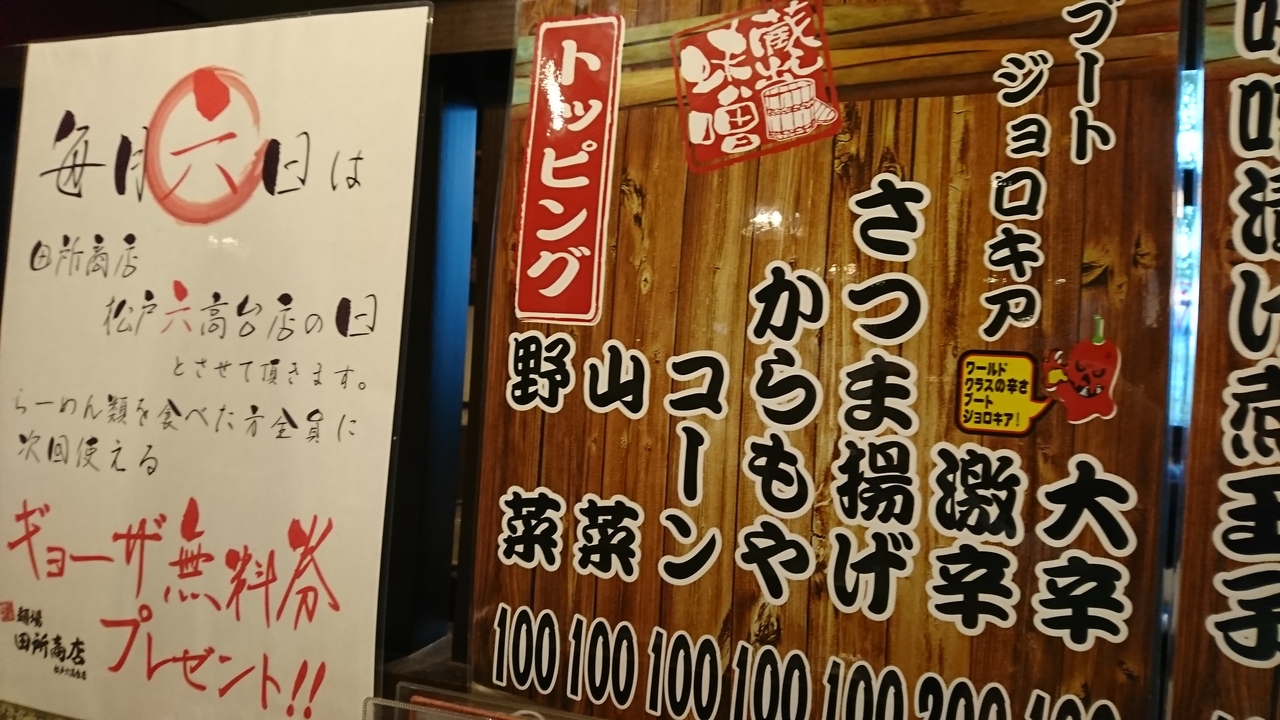 毎月六日は
田所商店
松戸六高台店の日
とさせて頂きます。
らーめん類を食べた方全員に
次回使える
ギョーザ無料券
プレゼント!!
麺場
田所商店
松戸六高台店
蔵出し
味噌
トッピング
ブート
ジョロキア
ワールド
クラスの辛さ
ブート
ジョロキア!
大辛
激辛 200
さつま揚げ 100
からもや 100
コーン 100
山菜 100
野菜 100
味噌漬け煮玉子